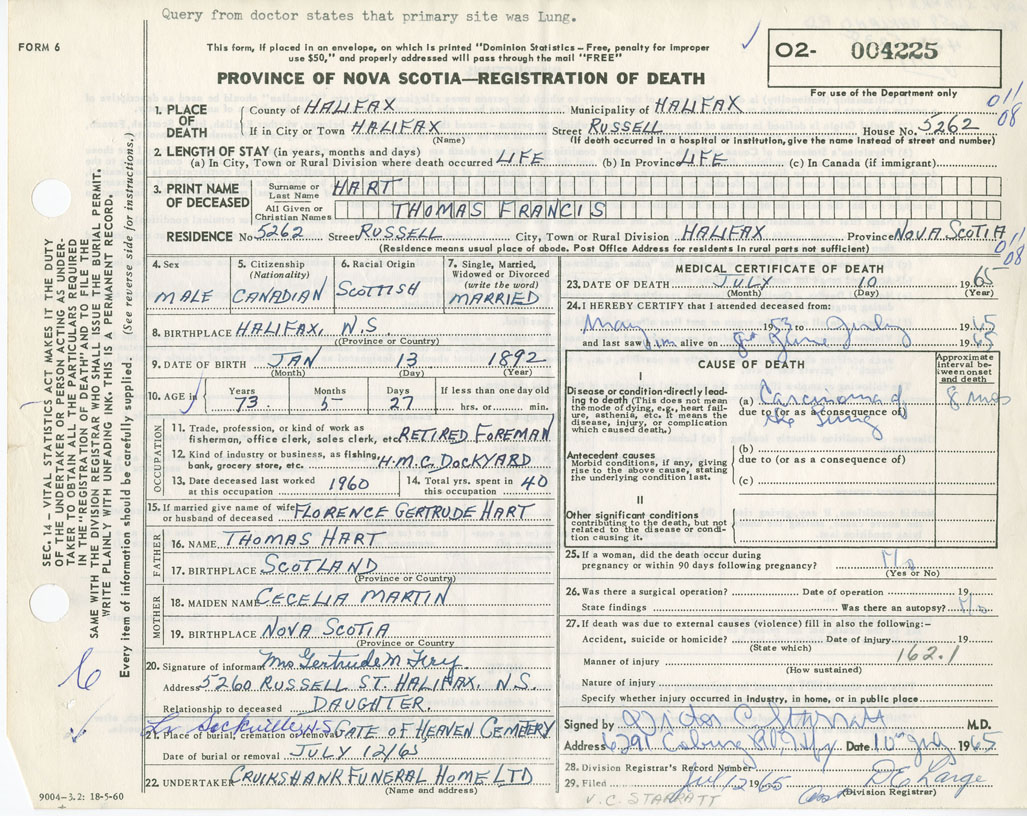 Query from doctor states that primary site was Lung.
FORM 6
This form, if placed in an envelope, on which is printed "Dominion Statistics – Free, penalty for improper
use $50," and properly addressed will pass through the mail "FREE"
PROVINCE OF NOVA SCOTIA—REGISTRATION OF DEATH
O2- 004225
For use of the Department only
011
08
1. PLACE OF DEATH
County of HALIFAX Municipality of HALIFAX
If in City or Town HALIFAX Street RUSSELL House No. 5262
(Name) (If death occurred in a hospital or institution, give the name instead of street and number)
2. LENGTH OF STAY (in years, months and days)
(a) In City, Town or Rural Division where death occurred LIFE (b) In Province LIFE (c) In Canada (if immigrant)
3. PRINT NAME OF DECEASED
Surname or Last Name HART
All Given or Christian Names THOMAS FRANCIS
RESIDENCE No 5262 Street RUSSELL City, Town or Rural Division HALIFAX Province NOVA SCOTIA
(Residence means usual place of abode. Post Office Address for residents in rural parts not sufficient)
011
08
4. Sex
MALE
5. Citizenship
(Nationality)
CANADIAN
6. Racial Origin
SCOTTISH
7. Single, Married,
Widowed or Divorced
(write the word)
MARRIED
8. BIRTHPLACE HALIFAX, N.S.
(Province or Country)
9. DATE OF BIRTH JAN 13 1892
(Month) (Day) (Year)
10. AGE in
Years Months Days If less than one day old
73 5 27 hrs. or min.
OCCUPATION
11. Trade, profession, or kind of work as
fisherman, office clerk, sales clerk, etc RETIRED FOREMAN
12. Kind of industry or business, as fishing,
bank, grocery store, etc. H.M.C. DOCKYARD
13. Date deceased last worked
at this occupation 1960
14. Total yrs. spent in
this occupation 40
15. If married give name of wife
or husband of deceased FLORENCE GERTRUDE HART
FATHER
16. NAME THOMAS HART
17. BIRTHPLACE SCOTLAND
(Province or Country)
MOTHER
18. MAIDEN NAME CECELIA MARTIN
19. BIRTHPLACE NOVA SCOTIA
(Province or Country
20. Signature of informant Mrs Gertrude M
Address 5260 RUSSELL ST. HALIFAX, N.S.
Relationship to deceased DAUGHTER.
Sackville N.S.
21. Place of burial, cremation or removal GATE OF HEAVEN CEMETERY
Date of burial or removal JULY 12/65
22. UNDERTAKER CRUIKSHANK FUNERAL HOME LTD
(Name and address)
MEDICAL CERTIFICATE OF DEATH
23. DATE OF DEATH JULY 10 1965
(Month) (Day) (Year)
24. I HEREBY CERTIFY that I attended deceased from:
May 1953 to July 1965
and last saw him alive on 1965
CAUSE OF DEATH
Approximate
interval be-
tween onset
and death
I
Disease or condition-directly lead-
ing to death (This does not mean
the mode of dying, e.g., heart fail-
ure, asthenia, etc. It means the
disease, injury, or complication
which caused death.)
(a) Carcinoma of 8 mos
due to (or as a consequence of)
the lung
Antecedent causes
Morbid conditions, if any, giving
rise to the above cause, stating
the underlying condition last.
(b)
due to (or as a consequence of)
(c)
II
Other significant conditions
contributing to the death, but not
related to the disease or condi-
tion causing it.
25. If a woman, did the death occur during
pregnancy or within 90 days following pregnancy? No
(Yes or No)
26. Was there a surgical operation? Date of operation 19
State findings Was there an autopsy? No
27. If death was due to external causes (violence) fill in also the following:-
Accident, suicide or homicide? Date of injury 19
(State which)
162.1
Manner of injury
(How sustained)
Nature of injury
Specify whether injury occurred in industry, in home, or in public place
Signed by Victor C. Starratt M.D.
Address 6291 Coburg Rd, Hfx Date 10th July 1965
28. Division Registrar's Record Number
29. Filed Jul 12 1965 D E Large
(Division Registrar)
V. C. STARRATT
SEC. 14 – VITAL STATISTICS ACT MAKES IT THE DUTY
OF THE UNDERTAKER OR PERSON ACTING AS UNDER-
TAKER TO OBTAIN ALL THE PARTICULARS REQUIRED
IN THE "REGISTRATION OF DEATH" AND TO FILE THE
SAME WITH THE DIVISION REGISTRAR WHO SHALL ISSUE THE BURIAL PERMIT.
WRITE PLAINLY WITH UNFADING INK. THIS IS A PERMANENT RECORD.
Every item of information should be carefully supplied. (See reverse side for instructions.)
6
9004–3.2: 18-5-60